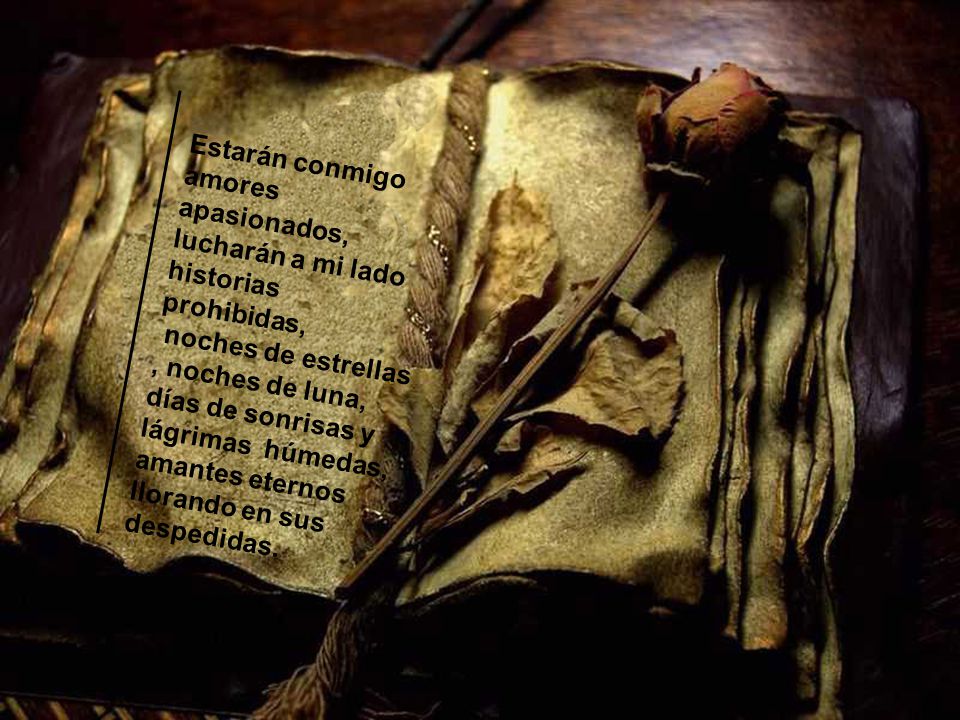 Estarán conmigo
amores
apasionados,
lucharán a mi lado
historias
prohibidas,
noches de estrellas
, noches de luna,
días de sonrisas y
lágrimas  húmedas,
amantes eternos
llorando en sus
despedidas.